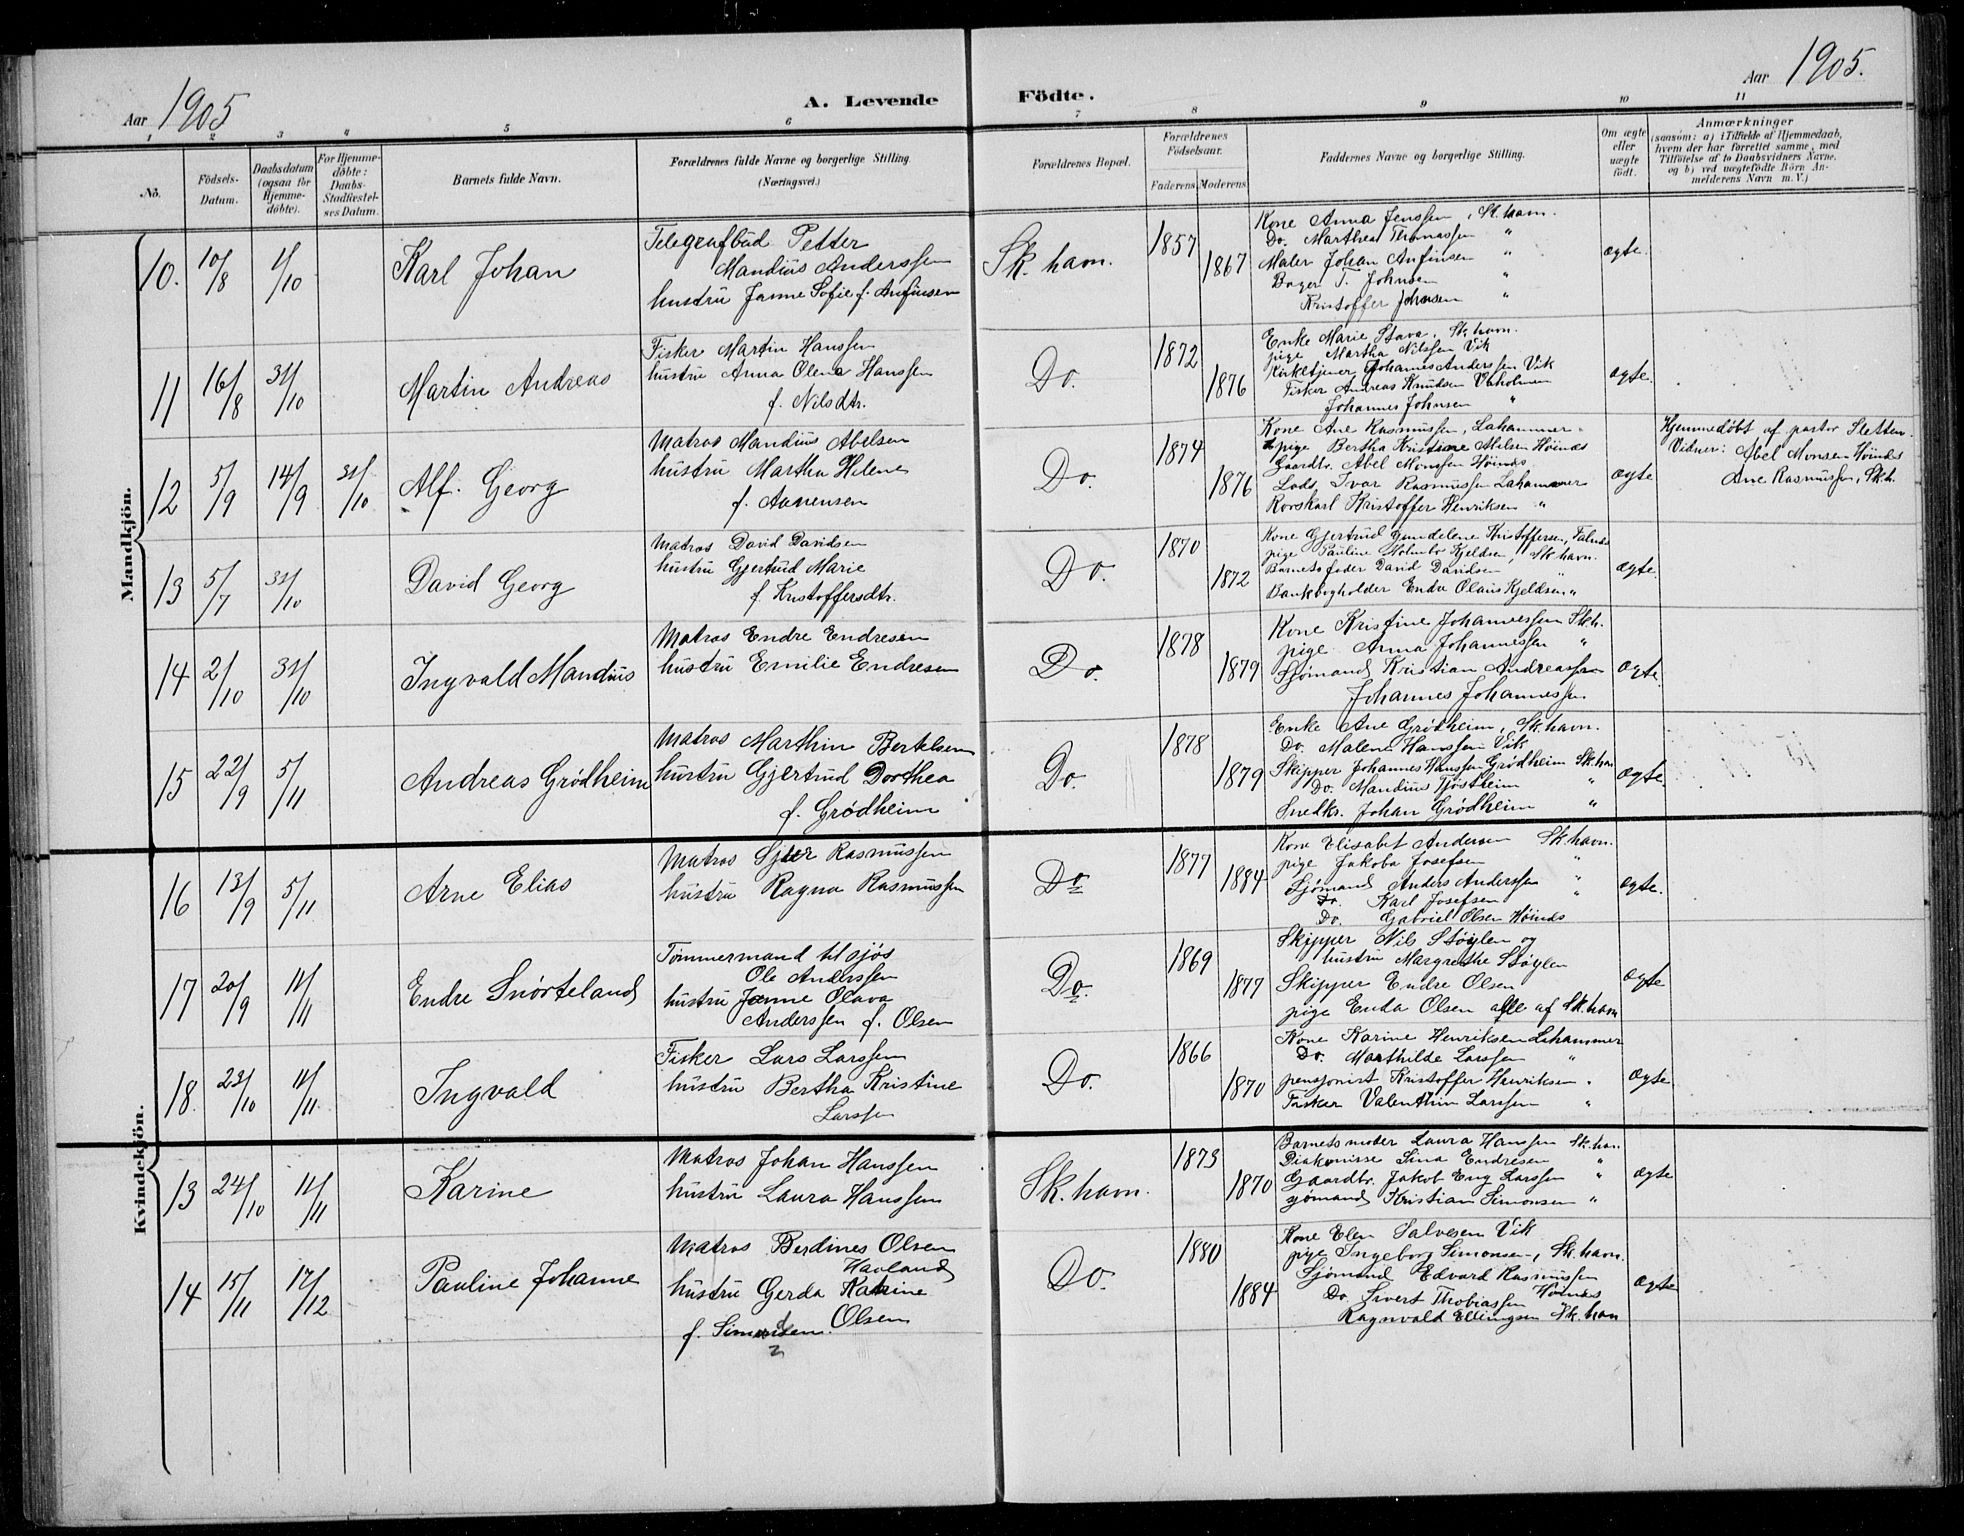 Aar 1905
A. Levende
Födte.
Aar 1905.
1 2 3 4 5 6 7 8 9 10 11
No.
Födsels-
Datum.
Daabsdatum
(ogsaa for
Hjemme-
döbte).
For Hjemme-
döbte:
Daabs-
Stadfæstel-
ses Datum.
Barnets fulde Navn.
Forældrenes fulde Navne og borgerlige Stilling.
(Næringsvei.)
Forældrenes Bopæl.
Forældrenes
Födselsaar.
Faderens Moderens
Faddernes Navne og borgerlige Stilling.
Om ægte
eller
uægte
födt.
Anmærkninger
(saasom: a) i Tilfælde af Hjemmedaab,
hvem der har forrettet samme, med
Tilföielse af to Daabsvidners Navne,
og b) ved uægtefödte Börn An-
melderens Navn m. V.)
Mandkjön.
10. 10/8 1/10
Karl Johan
Telegrafbud Petter
Mandius Anderssen
hustru Janne Sofie f. Anfinsen
Sk. havn.
1857
1867
Kone Anna Jenssen, Sk. havn.
Do. Marthea Thomassen "
Maler Johan Anfinsen "
Bager T. Johnsen "
Kristoffer Johnsen "
ægte.
11 16/8 31/10
Martin Andreas
Fisker Martin Hanssen
hustru Anna Olena Hanssen
f. Nilsdtr.
Do.
1872
1876
Enke Marie Stava, Sk. havn.
pige Martha Nilssen Vik
Kirketjener Johannes Anderssen Vik
Fisker Andreas Knudsen
Johannes Johnsen "
ægte.
12 5/9 14/9 31/10
Alf. Georg
Matros Mandius Abelsen
hustru Martha Helene
f. Aamensen
Do.
1874
1876
Kone Ane Rasmussen, Lahammer
pige Bertha Kristine Abelsen Høinæs
Gaardbr. Abel Monssen Høinæs
Lods Ivar Rasmussen Lahammer
Rorskarl Kristoffer Henriksen "
ægte
Hjemmedøbt af pastor Sletten.
Vidner: Abel Monsen Høinæs
Ane Rasmussen, Sk. h.
13 5/7 31/10
David Georg
Matros David Davidsen
hustru Gjertrud Marie
f. Kristoffersdtr.
Do.
1870
1872
Kone Gjertrud Gundelene Kristoffersen, Falnæs
pige Pauline Holmbo Kjeldsen, Sk. havn.
Barnets fader David Davidsen "
Bankbogholder Endre Olaus Kjeldsen "
ægte.
14 2/10 31/10
Ingvald Mandius
Matros Endre Endresen
hustru Emilie Endresen
Do.
1878
1879
Kone Kristine Johannessen Sk. h.
pige Anna Johannessen "
Sjømand Kristian Andreassen
Johannes Johannessen
ægte.
15 22/9 5/11
Andreas Grødheim
Matros Marthin Bertelsen
hustru Gjertrud Dorthea
f. Grødheim
Do.
1878
1879
Enke Ane Grødheim, Sk. havn.
Do. Malene Hanssen Vik
Skipper Johannes Hanssen Grødheim Sk. havn
Do. Mandius Tjøstheim "
Snedkr. Johan Grødheim "
ægte.
16 13/9 5/11
Arne Elias
Matros Sjur Rasmussen
hustru Ragna Rasmussen
Do
1877
1884
Kone Elisabet Andersen Sk. havn.
pige Jakoba Josefsen "
Sjømand Anders Anderssen "
Do. Karl Josefsen "
Do. Gabriel Olsen Høinæs
ægte.
17 20/9 11/11
Endre Snørteland
Tømmermand til sjøs
Ole Anderssen
hustru Janne Olava
Anderssen f. Olsen
Do.
1869
1877
Skipper Nils Støylen og
hustru Margrethe Støylen
Skipper Endre Olsen
pige Enda Olsen alle af Sk. havn
ægte
18. 23/10 11/11
Ingvald
Fisker Lars Larssen
hustru Bertha Kristine
Larssen
Do.
1866
1870
Kone Karine Henriksen Lahammer
Do. Marthilde Larssen "
pensjonist Kristoffer Henriksen "
Fisker Valenthin Larssen "
ægte
Kvindekjön.
13 24/10 11/11
Karine
Matros Johan Hanssen
hustru Laura Hanssen
Sk. havn.
1873
1870
Barnets moder Laura Hanssen Sk. havn
Diakonisse Sina Endresen "
Gaardbr. Jakob Eng Larssen "
sjømand Kristian Simonsen "
ægte
14 15/11 17/12
Pauline Johanne
Matros Berdines Olsen
Havland
hustru Gerda Katrine
Olsen
f. Simonsen.
Do.
1880
1884
Kone Elen Salvesen Vik
pige Ingeborg Simonsen, Sk. havn.
Sjømand Edvard Rasmussen
Do. Sivert Thobiassen Høinæs
Ragnvald Ellingsen Sk. havn
ægte